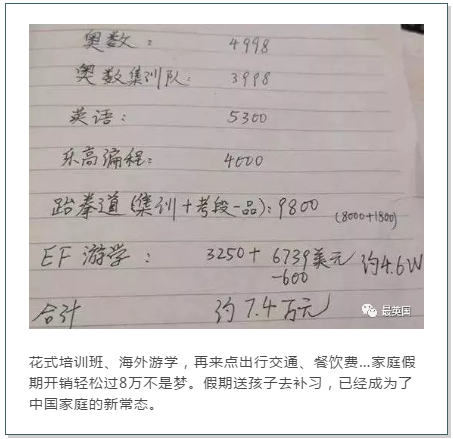 奥数： 4998
奥数集训队： 3998
英语： 5300
乐高编程： 4000
跆拳道（集训+考段一品）：9800 (8000+1800)
EF 游学： 3250+ 6739美元 约4.6W
-600
合计 约7.4万元
最英国
花式培训班、海外游学，再来点出行交通、餐饮费...家庭假
期开销轻松过8万不是梦。假期送孩子去补习，已经成为了
中国家庭的新常态。